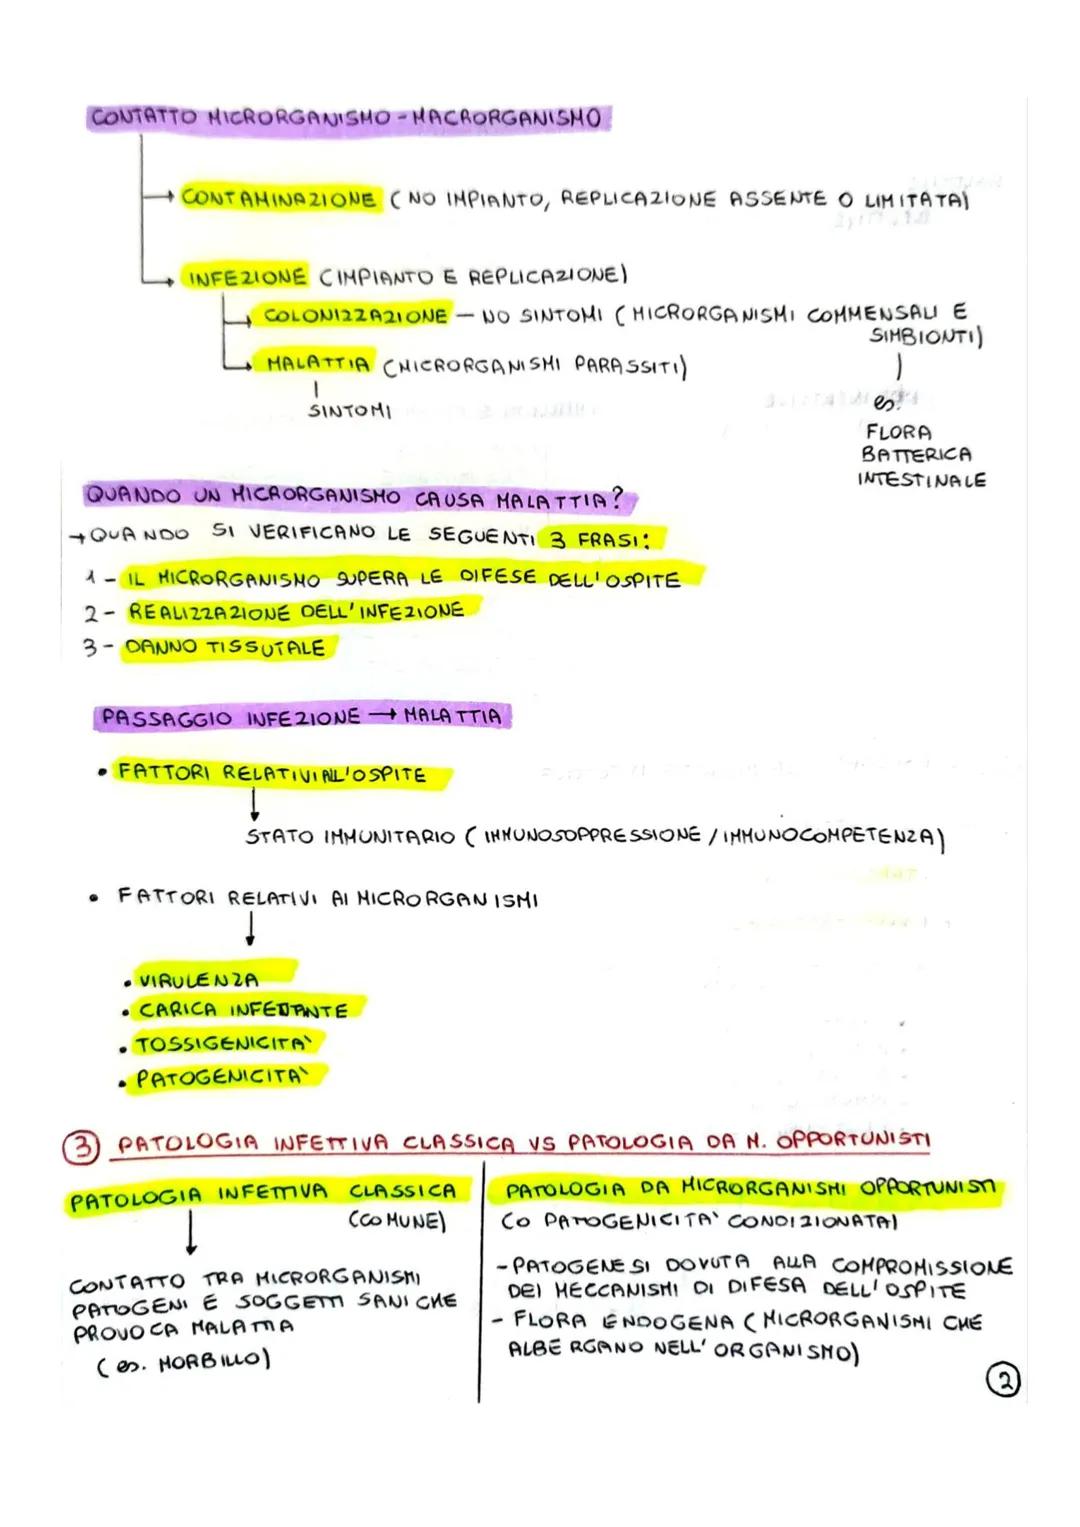 CONTATTO MICRORGANISMO - MACRORGANISMO
→ CONTAMINAZIONE (NO IMPIANTO, REPLICAZIONE ASSENTE O LIMITATA)
→ INFEZIONE (IMPIANTO E REPLICAZIONE)
→ COLONIZZAZIONE — NO SINTOMI (MICRORGANISMI COMMENSALI E
SIMBIONTI)
→ MALATTIA (MICRORGANISMI PARASSITI)
SINTOMI
es.
FLORA
BATTERICA
INTESTINALE
QUANDO UN MICRORGANISMO CAUSA MALATTIA?
→ QUANDO SI VERIFICANO LE SEGUENTI 3 FRASI:
1 - IL MICRORGANISMO SUPERA LE DIFESE DELL'OSPITE
2 - REALIZZAZIONE DELL'INFEZIONE
3 - DANNO TISSUTALE
PASSAGGIO INFEZIONE → MALATTIA
• FATTORI RELATIVI ALL'OSPITE
STATO IMMUNITARIO (IMMUNOSOPPRESSIONE / IMMUNOCOMPETENZA)
• FATTORI RELATIVI AI MICRORGANISMI
• VIRULENZA
• CARICA INFETTANTE
• TOSSIGENICITA'
• PATOGENICITA'
3 PATOLOGIA INFETTIVA CLASSICA VS PATOLOGIA DA M. OPPORTUNISTI
PATOLOGIA INFETTIVA CLASSICA
(COMUNE)
CONTATTO TRA MICRORGANISMI
PATOGENI E SOGGETTI SANI CHE
PROVOCA MALATTIA
(es. MORBILLO)
PATOLOGIA DA MICRORGANISMI OPPORTUNISTI
(O PATOGENICITA' CONDIZIONATA)
- PATOGENESI DOVUTA ALLA COMPROMISSIONE
DEI MECCANISMI DI DIFESA DELL'OSPITE
- FLORA ENDOGENA (MICRORGANISMI CHE
ALBERGANO NELL'ORGANISMO)
2